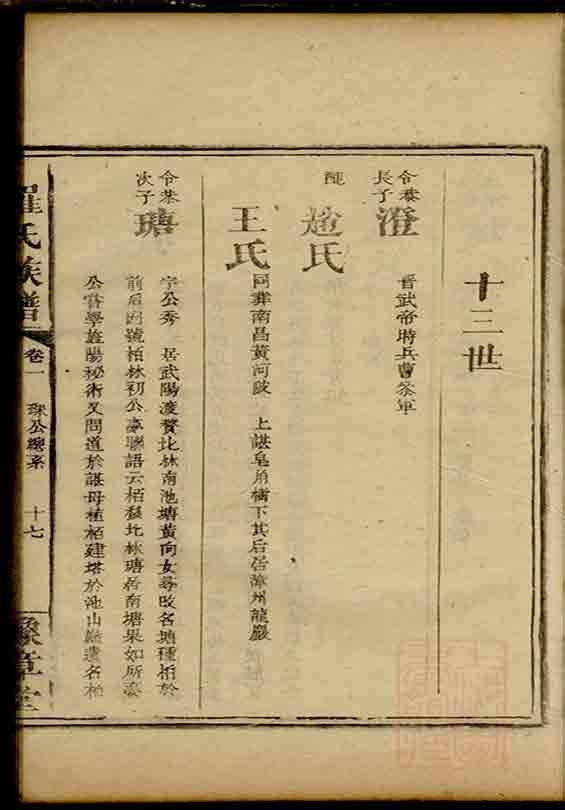 十三世
令恭長子
澄
晉武帝時兵曹參軍
配
趙氏
王氏
同葬南昌黃河陂 上諶皂角樹下其后居漳州龍巖
令恭次子
瑭
字公秀 居武陽渡贅比林南池塘黃向女尋改名塘種柏於
前后因號柏林初公夢聯語云柏林瑭南塘果如所夢
公嘗學旌陽秘術又問道於諶母植柏建塔於池山巖遺名柏
羅氏族譜
卷一
琛公總系
十七
豫章堂